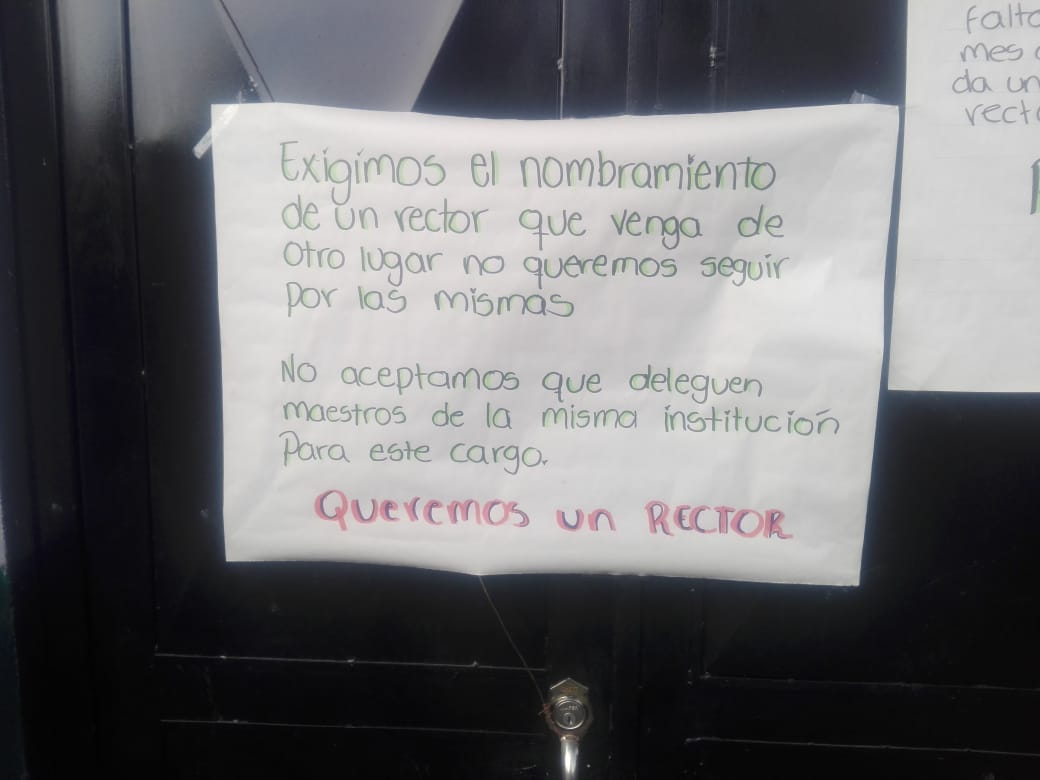 Exigimos el nombramiento
de un rector que venga de
otro lugar no queremos seguir
por las mismas
No aceptamos que deleguen
maestros de la misma institución
Para este cargo.
Queremos un RECTOR
mes